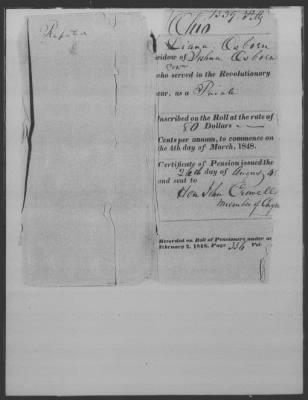 Ohio
Osborn
widow of Joshua Osborn
who served in the Revolutionary
war, as a Private
Inscribed on the Roll at the rate of
80 Dollars
Cents per annum, to commence on
the 4th day of March, 1848.
Certificate of Pension issued the
day of
and sent to
Hon John Crowell
Member of
Recorded on Roll of Pensioners under
February 2, 1848. Page 336 Vol